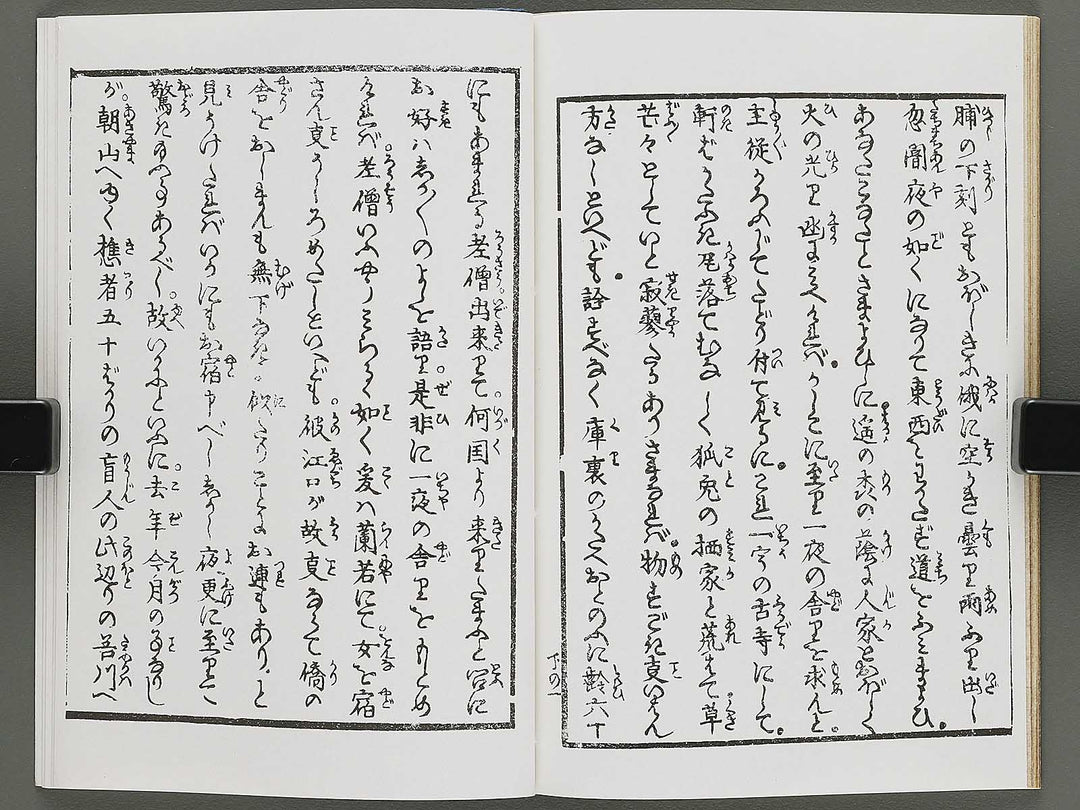 脯の下刻ともおぼしきに俄に空かき曇り雨ふり出し
忽闇夜の如くになりて東西をわかたず道をふみまよひ
あなたこなたとさまよひしに遥の森の蔭に人家とおぼしく
火の光り幽に見へければかしこに至り一夜の舎りを求んと
主従からふじてたどり付て見るにこれ一宇の古寺にして
軒ばかたふき尾落てむなしく狐兎の栖家と荒はて草
芒々としていと寂蓼たるありさまなれば物すごき事いはん
方なしといへども詮すべなく庫裏のかたへおとのふに齢六十
下の一
にもあまれる老僧出来りて何国より来りたまふと宮に
お好はしか〲のよしを語り是非に一夜の舎りをもとめ
ければ老僧いふやう見らるゝ如く爰は蘭若にて女を宿
さん事うしろめたしといへども彼江口が故事ならで僑の
舎りをおしまんも無下なるに殊さらお連もあり と
見うけたればいかにもお宿申べししかし夜更に至りて
驚き給ふ事あるべし故いかにといふに去年今月の事なりし
が朝山へゆく樵者五十ばかりの盲人の此辺りの谷川へ